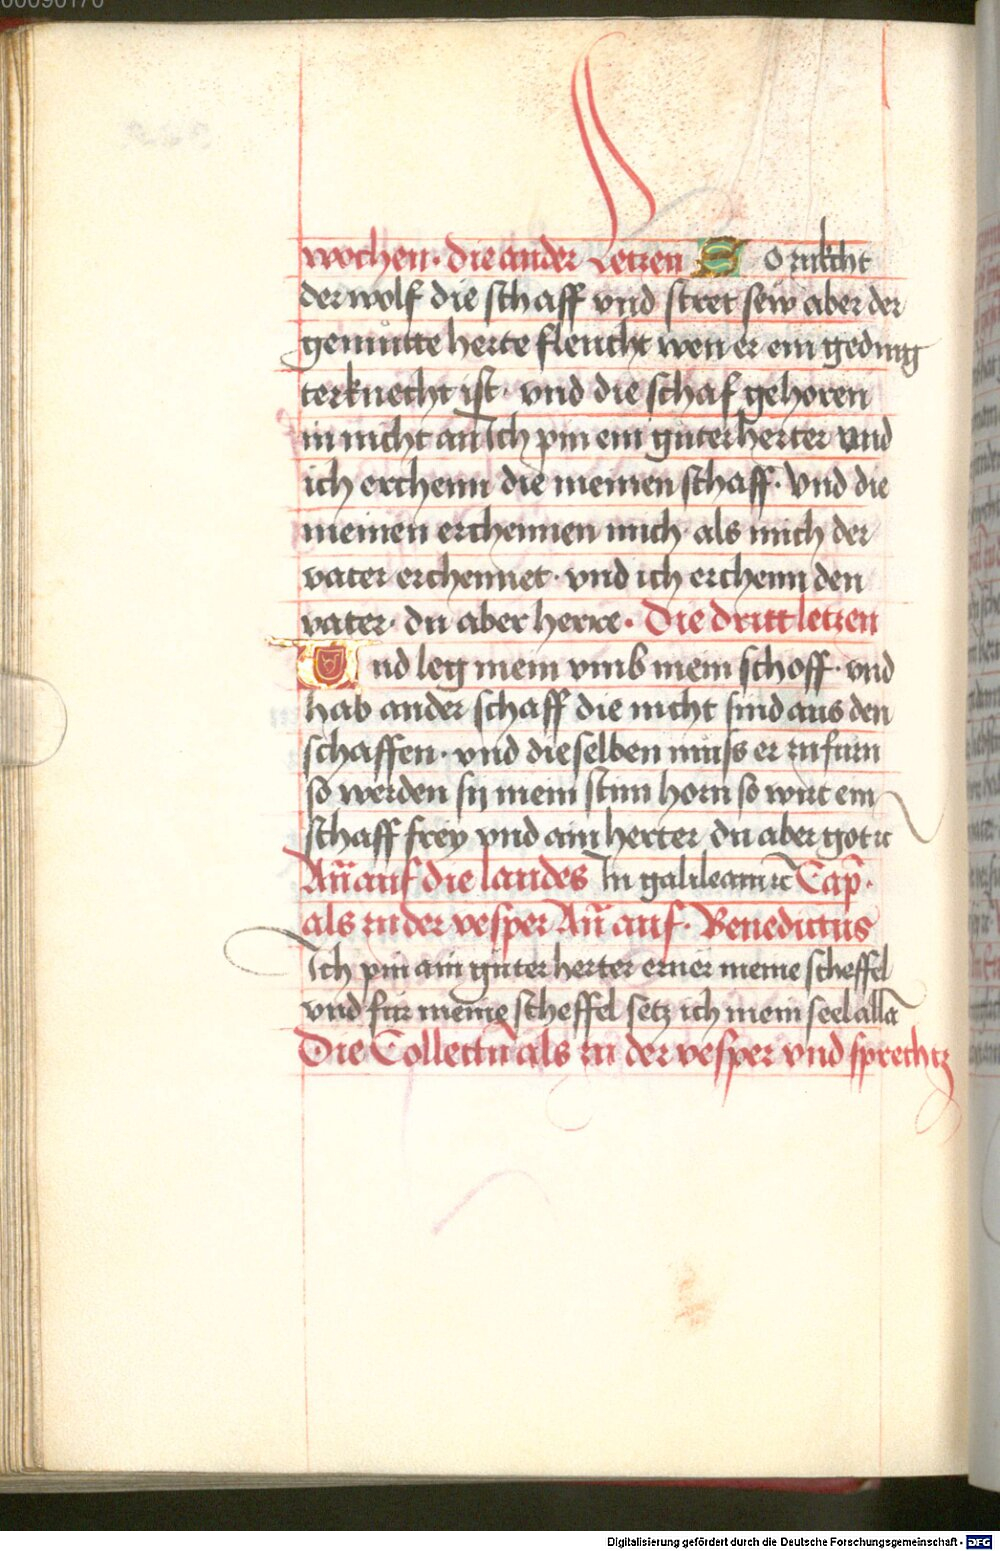 wochen · die ander Letzen So zukcht
der wolf die schaff vnd stret sew aber der
gemiitte herte fleucht wen er ein geding
terknecht ist · vnd die schaf gehoren
in nicht an Ich pin ein guter herter vnd
ich erchenn die meinen schaff · vnd die
meinen erchennen mich · als mich der
vater erchennet · vnd ich erchenn den
vater · du aber herre · Die dritt letzen
Vnd leg mein vmb mein schoff · vnd
hab ander schaff die nicht sind aus den
schaffen · vnd dieselben muss er zufurn
so werden sy mein stim horn so wirt ein
schaff frey vnd ain herter du aber got
An̄ auf die laudes In galileam Cap̄ ·
als zu der vesper An̄ auf · Benedictus
Ich pin ain guter herter erner meine scheffel
vnd fur meine scheffel setz ich mein seel alla
Die Collectn̄ als zu der vesper vnd sprecht
Digitalisierung gefördert durch die Deutsche Forschungsgemeinschaft - DFG